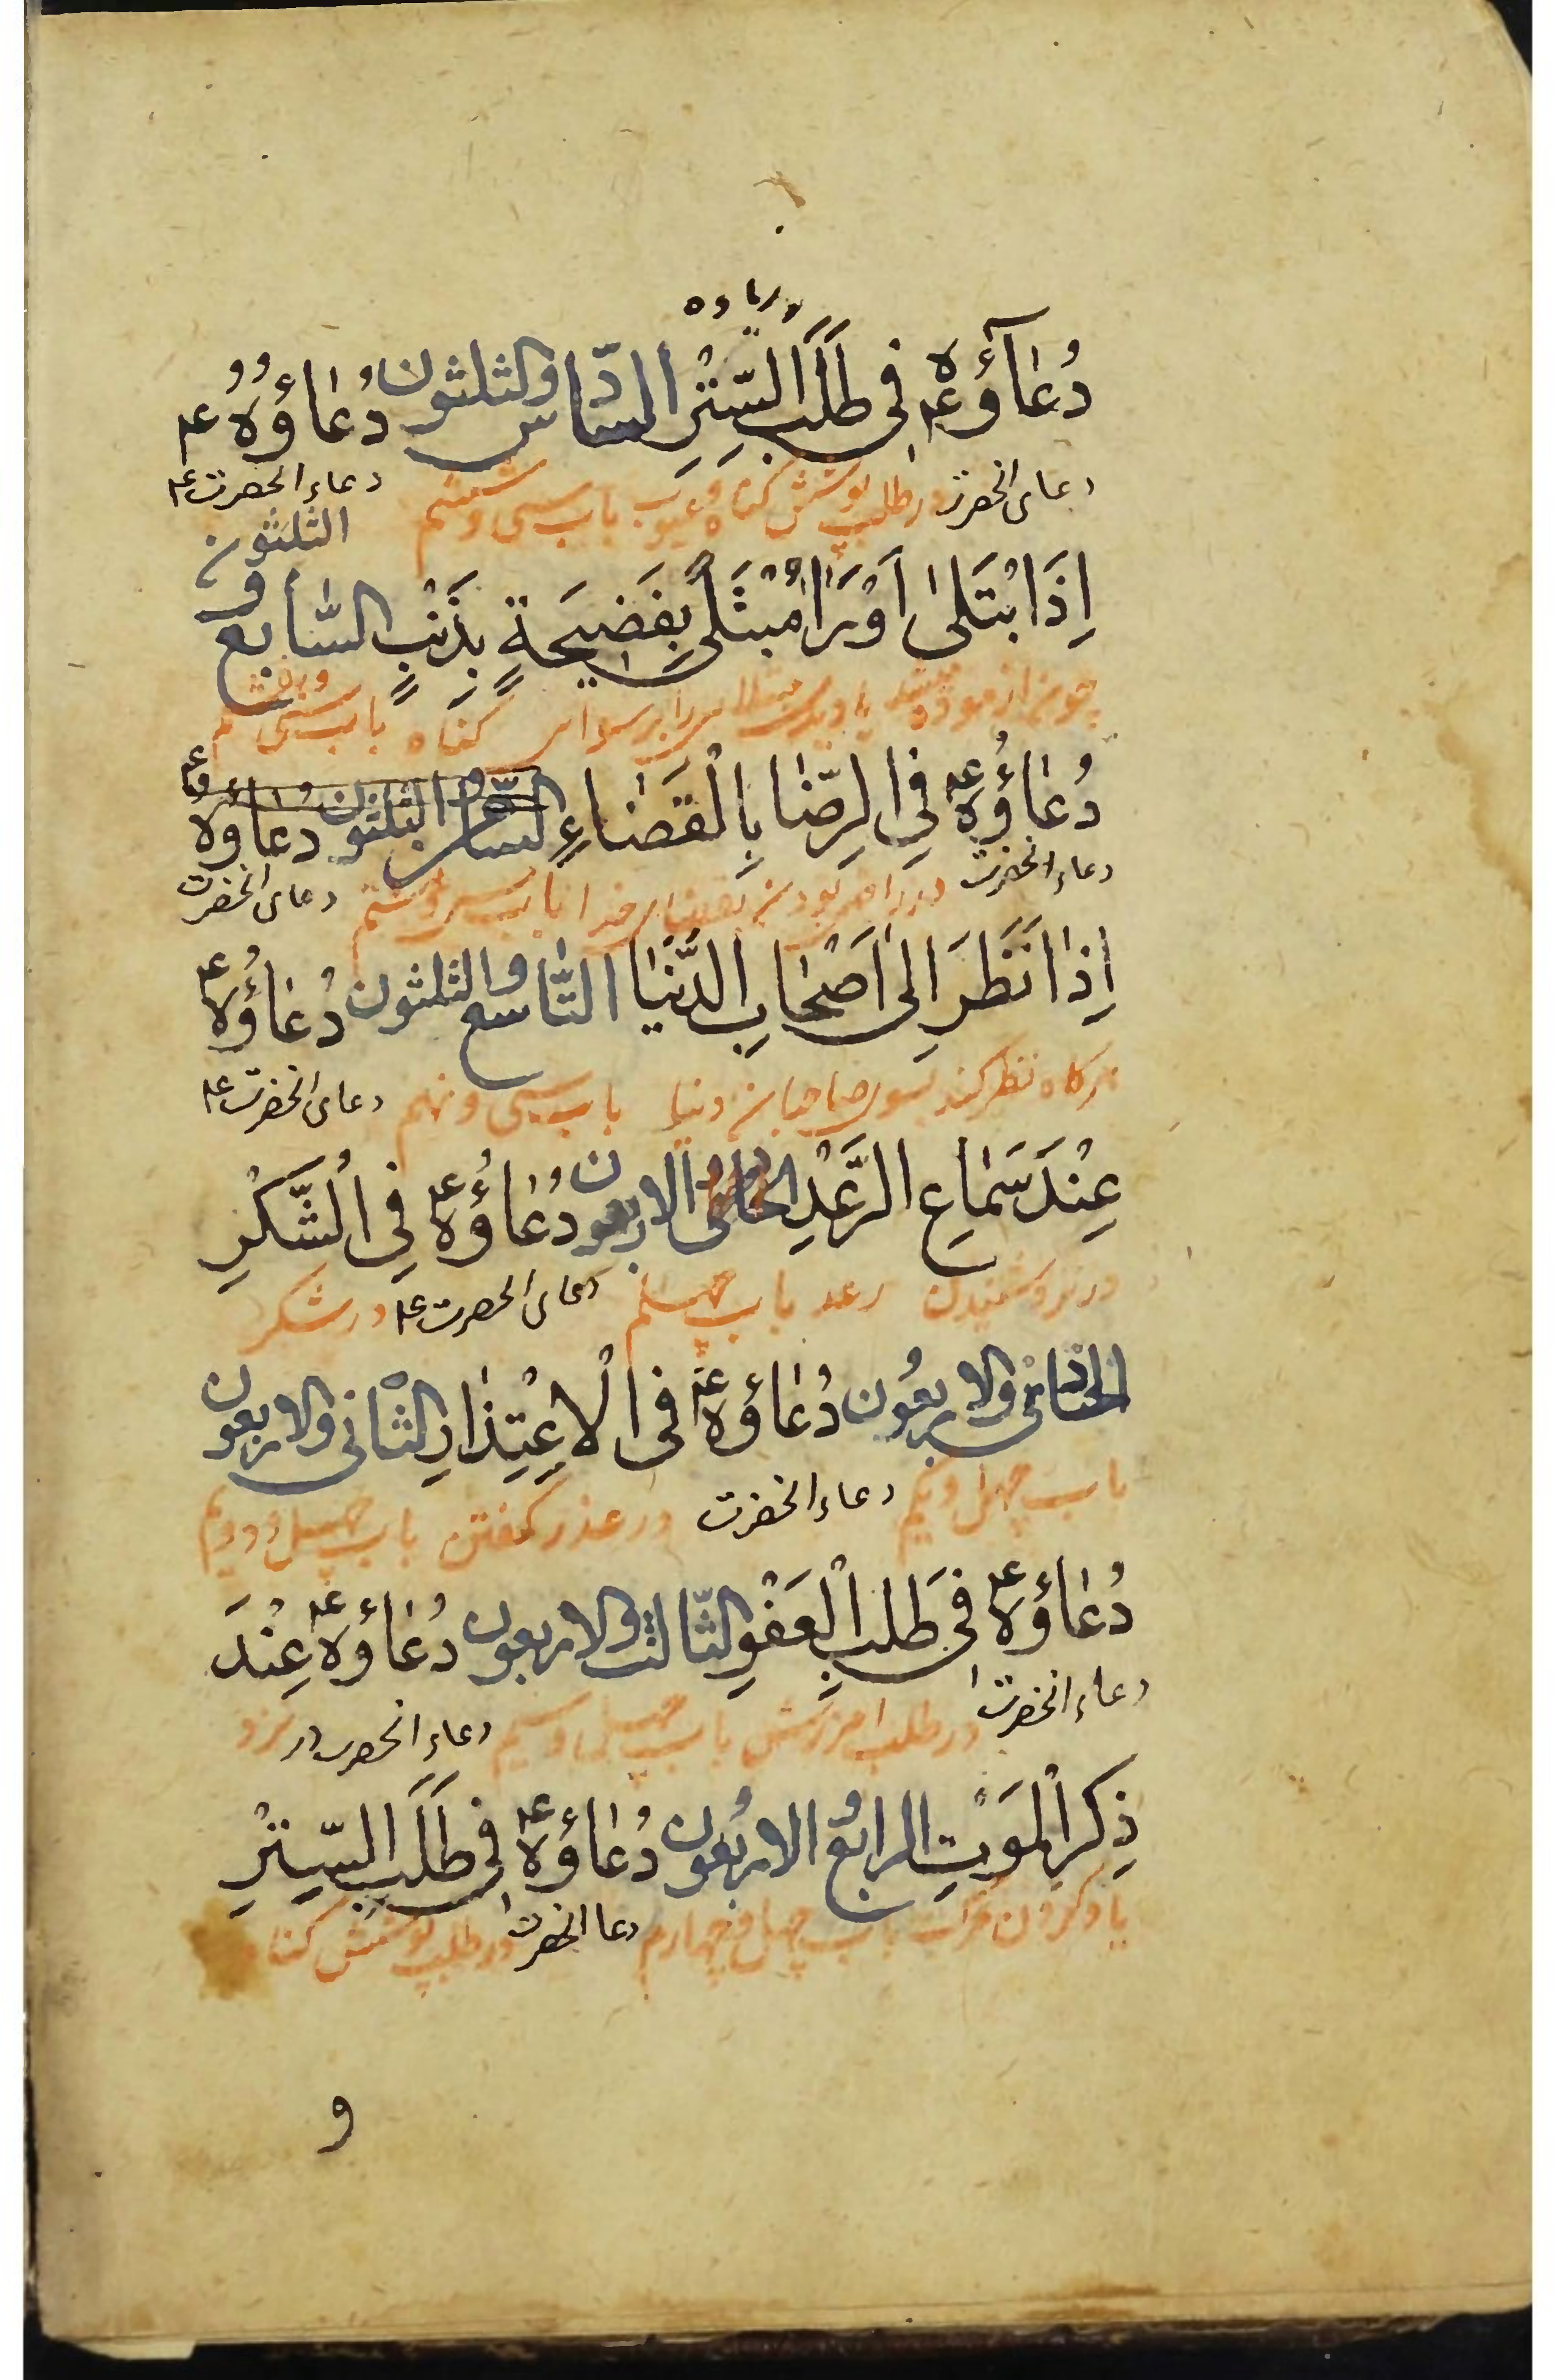 دُعٰآؤُهُ ع‍م فِی طَلَبِ السِّتْرِ السّادس والثلثون دُعٰاؤُهُ ع‍م
دعاء انحضرت در طلب پوشش گناه و عیوب باب سی و ششم دعاء انحضرت ع‍م
الثلثون
اِذَا ابْتَلیٰ اَوْ رَاٰ مُبْتَلیً بِفَضیٖحَةٍ بِذَنْبٍ السّٰابع و
چون ازموده یا دید مبتلا را برسوای گناه باب سی و هفتم
دُعٰاؤُهُ ع‍م فِی الرِّضٰا بِالْقَضٰاءِ الثامن و الثلثون دُعٰاؤُهُ ع‍م
دعاء انحضرت در راضی بودن بقضای خدا باب سی و هشتم دعای انحضرت
اِذٰا نَظَرَ اِلیٰ اَصْحٰابِ الدُّنْیٰا التّٰاسع والثلثون دُعٰاؤُهُ ع‍م
هرکاه نظر کند بسوی صاحبان دنیا باب سی و نهم دعای انحضرت ع‍م
عِنْدَ سَمٰاعِ الرَّعْدِ الاربعون دُعٰاؤُهُ ع‍م فِی الشُّکْرِ
در نزد شنیدن رعد باب چهلم دعای انحضرت ع‍م در شکر
الحادی والاربعُون دُعٰاؤُهُ ع‍م فی الْاِعْتِذٰارِ الثّانی والاربعون
باب چهل و یکم دعاء انحضرت در عذر کفتن باب چهل و دویم
دُعٰاؤُهُ ع‍م فی طَلَبِ الْعَفْوِ الثّالث والاربعون دُعٰاؤُهُ ع‍م عِنْدَ
دعاء انحضرت در طلب امرزش باب چهل و سیم دعاء انحضرت در نزد
ذِکْرِ الْمَوْتِ الرابع و الاربعون دُعٰاؤُهُ ع‍م فی طَلَبِ السِّتْرِ
یاد کردن مرک باب چهل و چهارم دعا انحضرت در طلب پوشش کناه
و